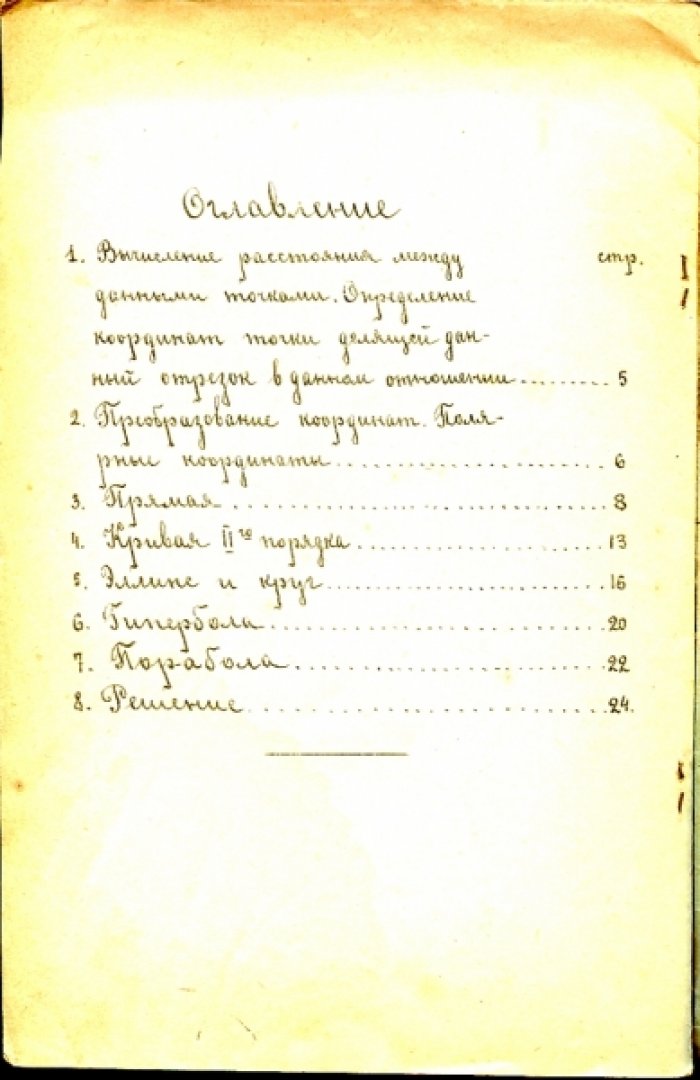 Оглавление
1. Вычисление расстояния между стр.
данными точками. Определение
координат точки делящей дан-
ный отрезок в данном отношении.......... 5
2. Преобразование координат. Поля-
рные координаты........................ 6
3. Прямая.............................. 8
4. Кривая IIго порядка....................... 13
5. Эллипс и круг........................... 16
6. Гипербола............................. 20
7. Порабола............................. 22
8. Решение.............................. 24.